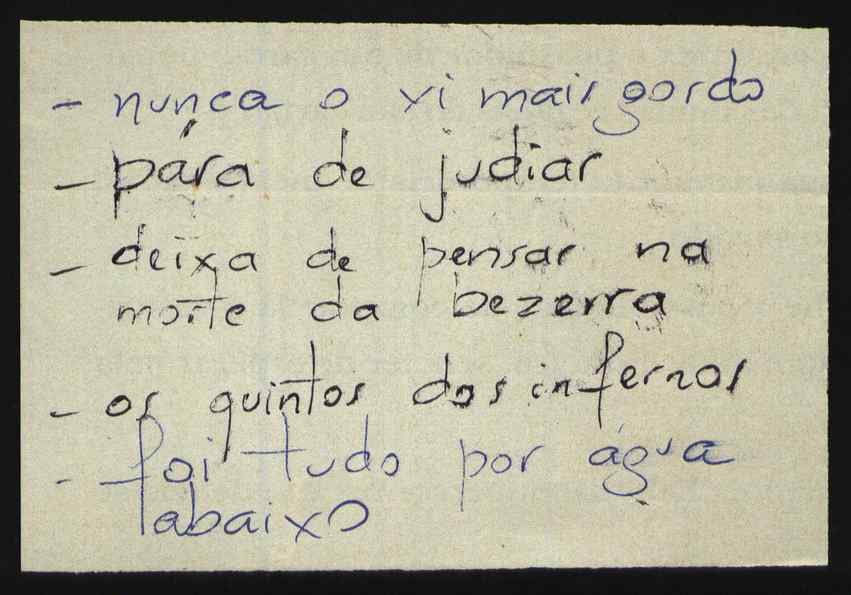 - nunca o vi mais gordo
- pára de judiar
- deixa de pensar na
morte da bezerra
- os quintos dos infernos
- foi tudo por água
abaixo